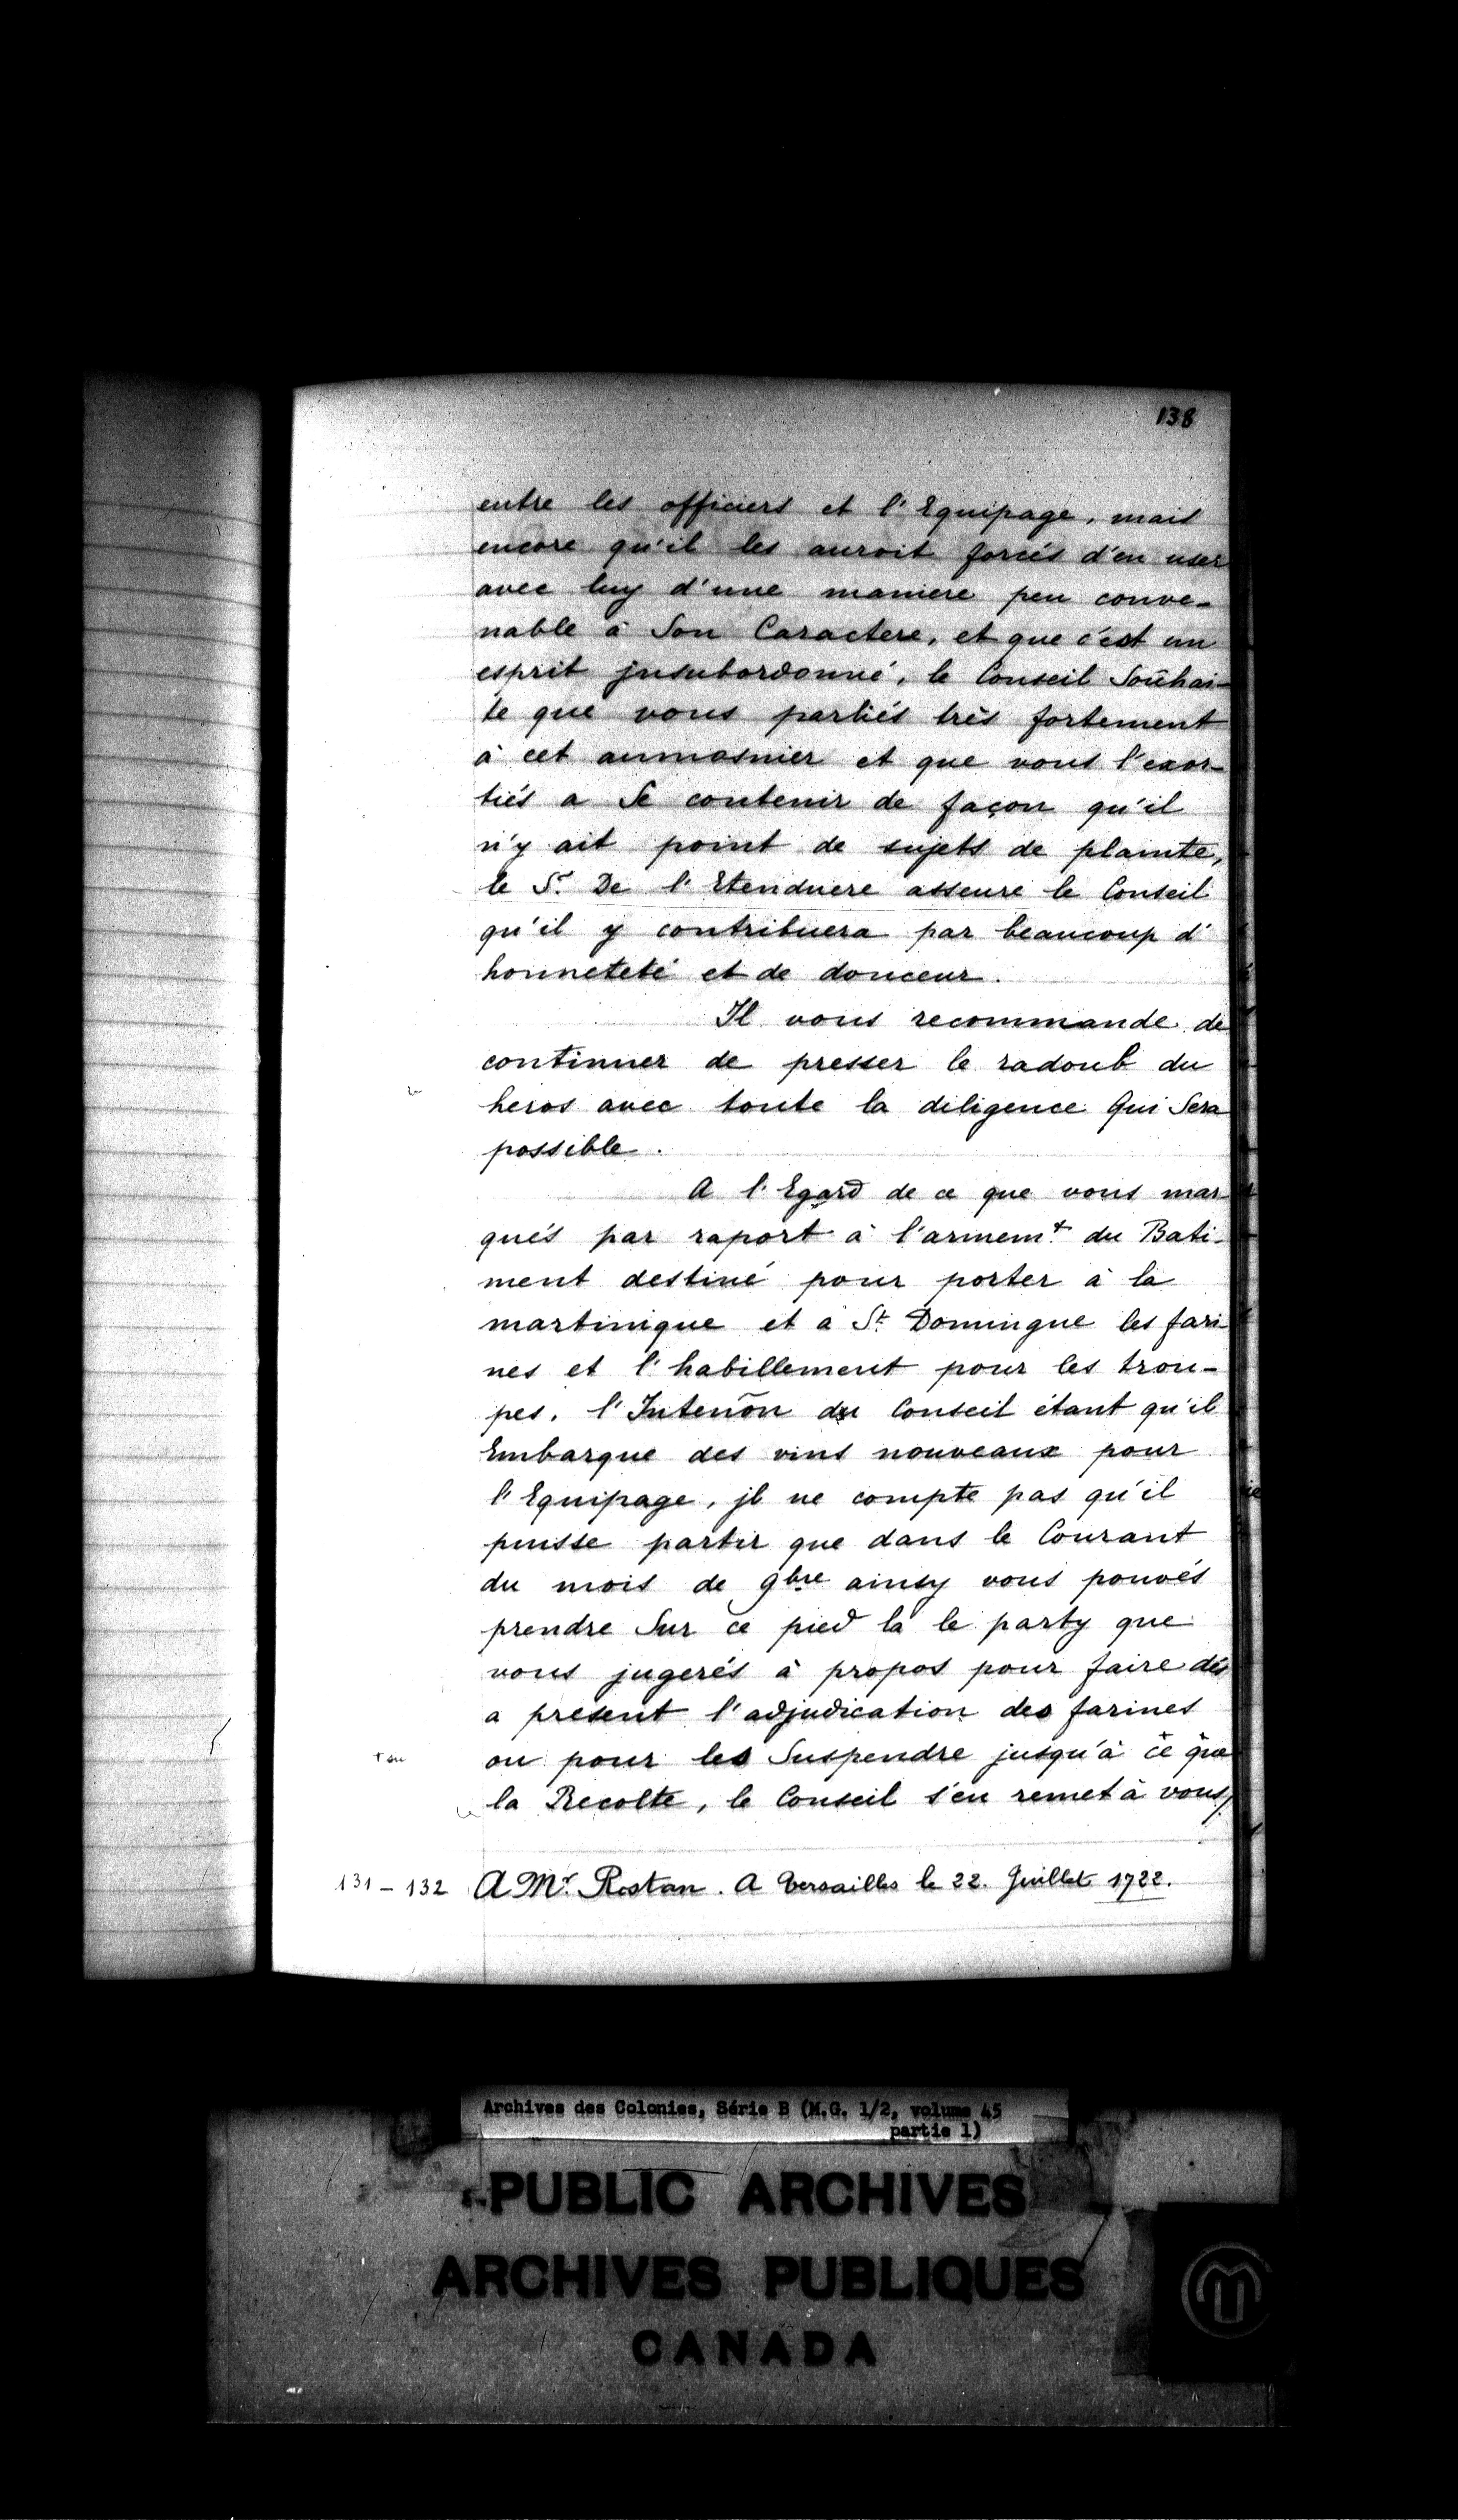 138
entre les officiers et l'Equipage, mais
encore qu'il les auroit forcés d'en user
avec luy d'une maniere peu conve-
nable à Son Caractere, et que c'est un
esprit jnsubordonné, le Conseil Souhai-
te que vous parliés très fortement
à cet aumosnier et que vous l'exor-
tiés a Se contenir de façon qu'il
n'y ait point de sujets de plainte,
le Sr. De l'Etenduere asseure le Conseil
qu'il y contribuera par beaucoup d'
honneteté et de douceur.
Il vous recommande de
continuer de presser le radoub du
heros avec toute la diligence Qui Sera
possible.
A l'Egard de ce que vous mar
qués par raport à l'armemt. du Bati-
ment destiné pour porter à la
martinique et a St. Domingue les fari
nes et l'habillement pour les trou-
pes, l'Intenõn du Conseil étant qu'il
Embarque des vins nouveaux pour
l'Equipage, jl ne compte pas qu'il
puisse partir que dans le Courant
du mois de 9bre ainsy vous pouvés
prendre Sur ce pied là le party que
vous jugerés à propos pour faire dès
a present l'adjudication des farines
+ ou
ou pour les Suspendre jusqu'à ce que
la Recolte, le Conseil s'en remet à vous/.
131 - 132 A Mr. Rostan. A Versailles le 22. Juillet 1722.
Archives des Colonies, Série B (M.G. 1/2, volume 45
partie 1)
PUBLIC ARCHIVES
ARCHIVES PUBLIQUES
CANADA